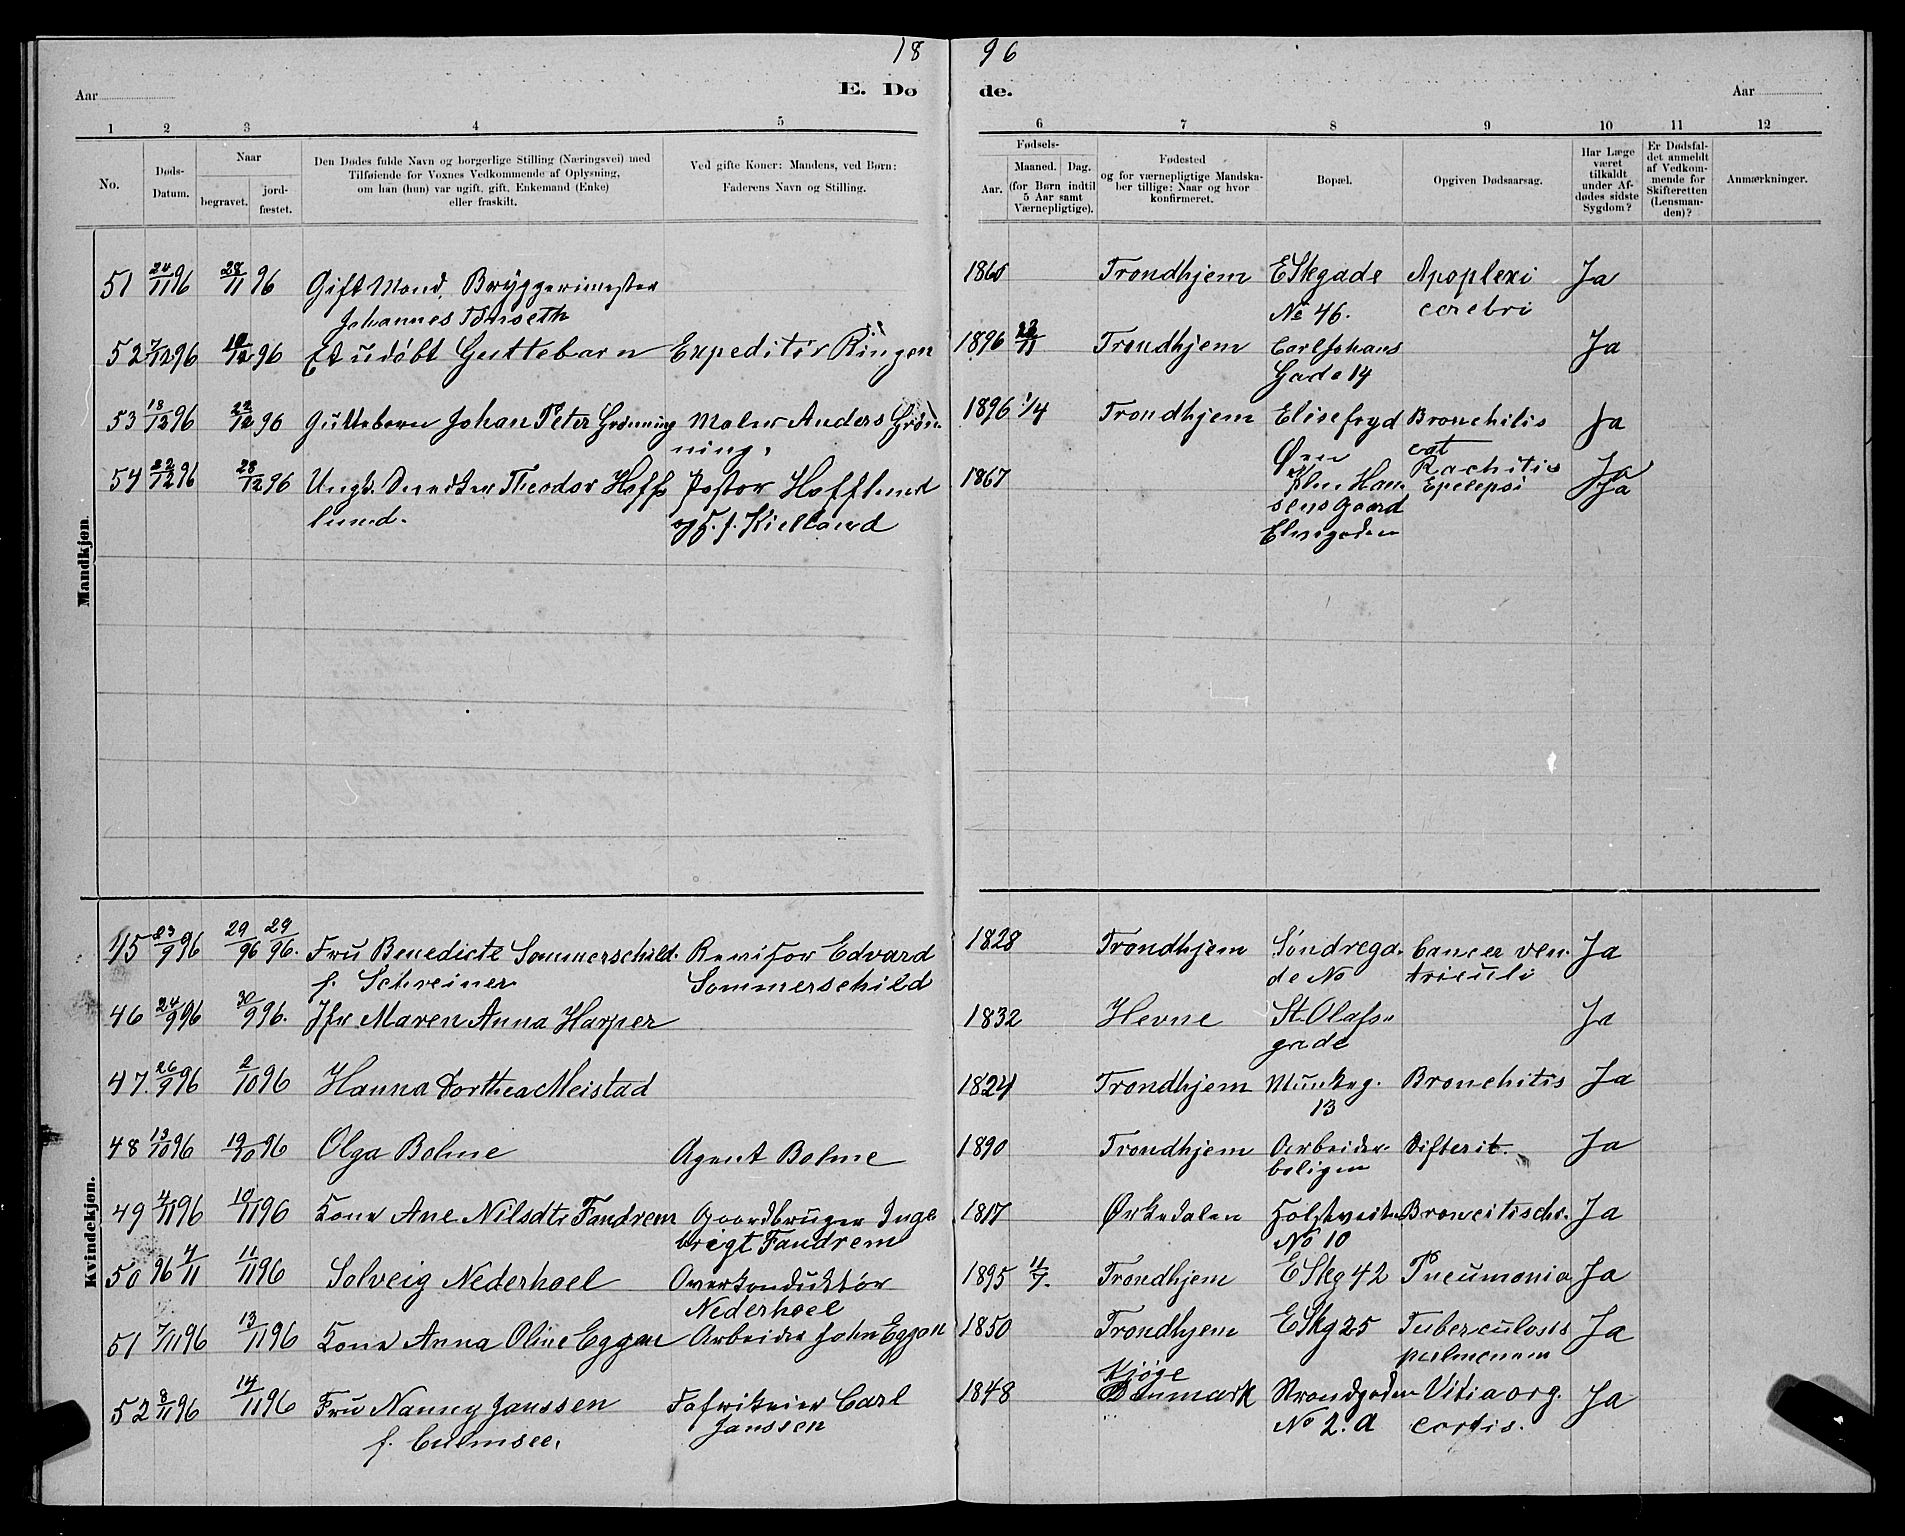 18 96
Aar E. Dø de. Aar
1 2 3 4 5 6 7 8 9 10 11 12
No.
Døds-
Datum.
Naar
begravet.
jord-
fæstet.
Den Dødes fulde Navn og borgerlige Stilling (Næringsvei) med
Tilføiende for Voxnes Vedkommende af Oplysning,
om han (hun) var ugift, gift, Enkemand (Enke)
eller fraskilt.
Ved gifte Koner: Mandens, ved Børn:
Faderens Navn og Stilling.
Fødsels-
Aar.
Maaned. Dag.
(for Børn indtil
5 Aar samt
Værnepligtige).
Fødested
og for værnepligtige Mandska-
ber tillige: Naar og hvor
konfirmeret.
Bopæl.
Opgiven Dødsaarsag.
Har Læge
været
tilkaldt
under Af-
dødes sidste
Sygdom?
Er Dødsfal-
det anmeldt
af Vedkom-
mende for
Skifteretten
(Lensman-
den)?
Anmærkninger.
Mandkjøn.
51 24/11 96 28/11 96 Gift Mand, Bryggerimester 1860 Trondhjem ESkgade Apoplexi Ja
Johannes Tønseth No 46. cerebri
52 7/12 96 12/12 96 Et udøbt Guttebarn Expeditør Ringen 1896 23/11 Trondhjem Carl Johans Ja
Gade 14
53 18/12 96 22/12 96 Guttebarn Johan Peter Grønning Maler Anders Grøn 1896 1/4 Trondhjem Elisefryd Bronchitis Ja
ning, Øen cat
Rachitis Ja
54 22/12 96 28/12 96 Ungk. Theodor Hoff Pastor Hofflund 1867 Han Epelepsi Ja
lund. og F. f. Kielland sens Gaard
Elvegaden
Kvindekjøn.
45 23/9 96 29/96 29/96. Fru Benedicte Sommerschild. Revisor Edvard 1828 Trondhjem Søndrega. Cancer ven Ja
f. Schreiner Sommerschild de No triculi
46 24/9 96 30/9 96. Jfr Maren Anna Harper 1832 Hevne St. Olafs Ja
gade
47. 26/9 96 2/10 96 Hanna Dorthea Meistad 1824 Trondhjem Munkeg. Bronchitis Ja
13
48 13/10 96 19/10 96 Olga Bohme Agent Bohme 1890 Trondhjem Arbeider Difterit. Ja
boligen
49 4/11 96 10/11 96 Kone Ane Nilsdtr Fandrem Gaardbruger Inge 1817 Ørkedalen Holstveiten Broncitischr. Ja
bregt Fandrem No 10
50 96 4/11 11/11 96 Solveig Nederhoel Overkonduktør 1895 11/7. Trondhjem ESkg 42 Pneumonia Ja
Nederhoel
51 7/11 96 13/11 96 Kone Anna Oline Eggen Arbeider John Eggen 1850 Trondhjem ESkg 25 Tuberculosis Ja
pulmonum
52 8/11 96 14/11 96 Fru Nanny Janssen Fabrikeier Carl 1848 Kjøge Strandgaden Vitia org. Ja
f. Culmsee. Janssen Danmark No 2. a cordis.